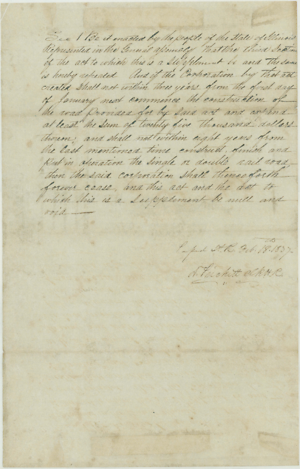 Sec 1 Be it enacted by the people of the State of Illinois
Represented in the General Assembly That the third Section
of the act to which this is a Supplement be and the same
is hereby repealed And if the Corporation by that act
created shall not within three years from the first day
of January next commence the construction of
the road provided for by said act and expend
at least the sum of twenty five thousand dollars
thereon, and shall not within eight years from
the last mentioned time construct, finish and
put in operation the single or double rail road
then the said corporation shall thenceforth
forever cease, and this act and the act to
which this is a Supplement be null and
void —
H. R. Feb. 18 1837